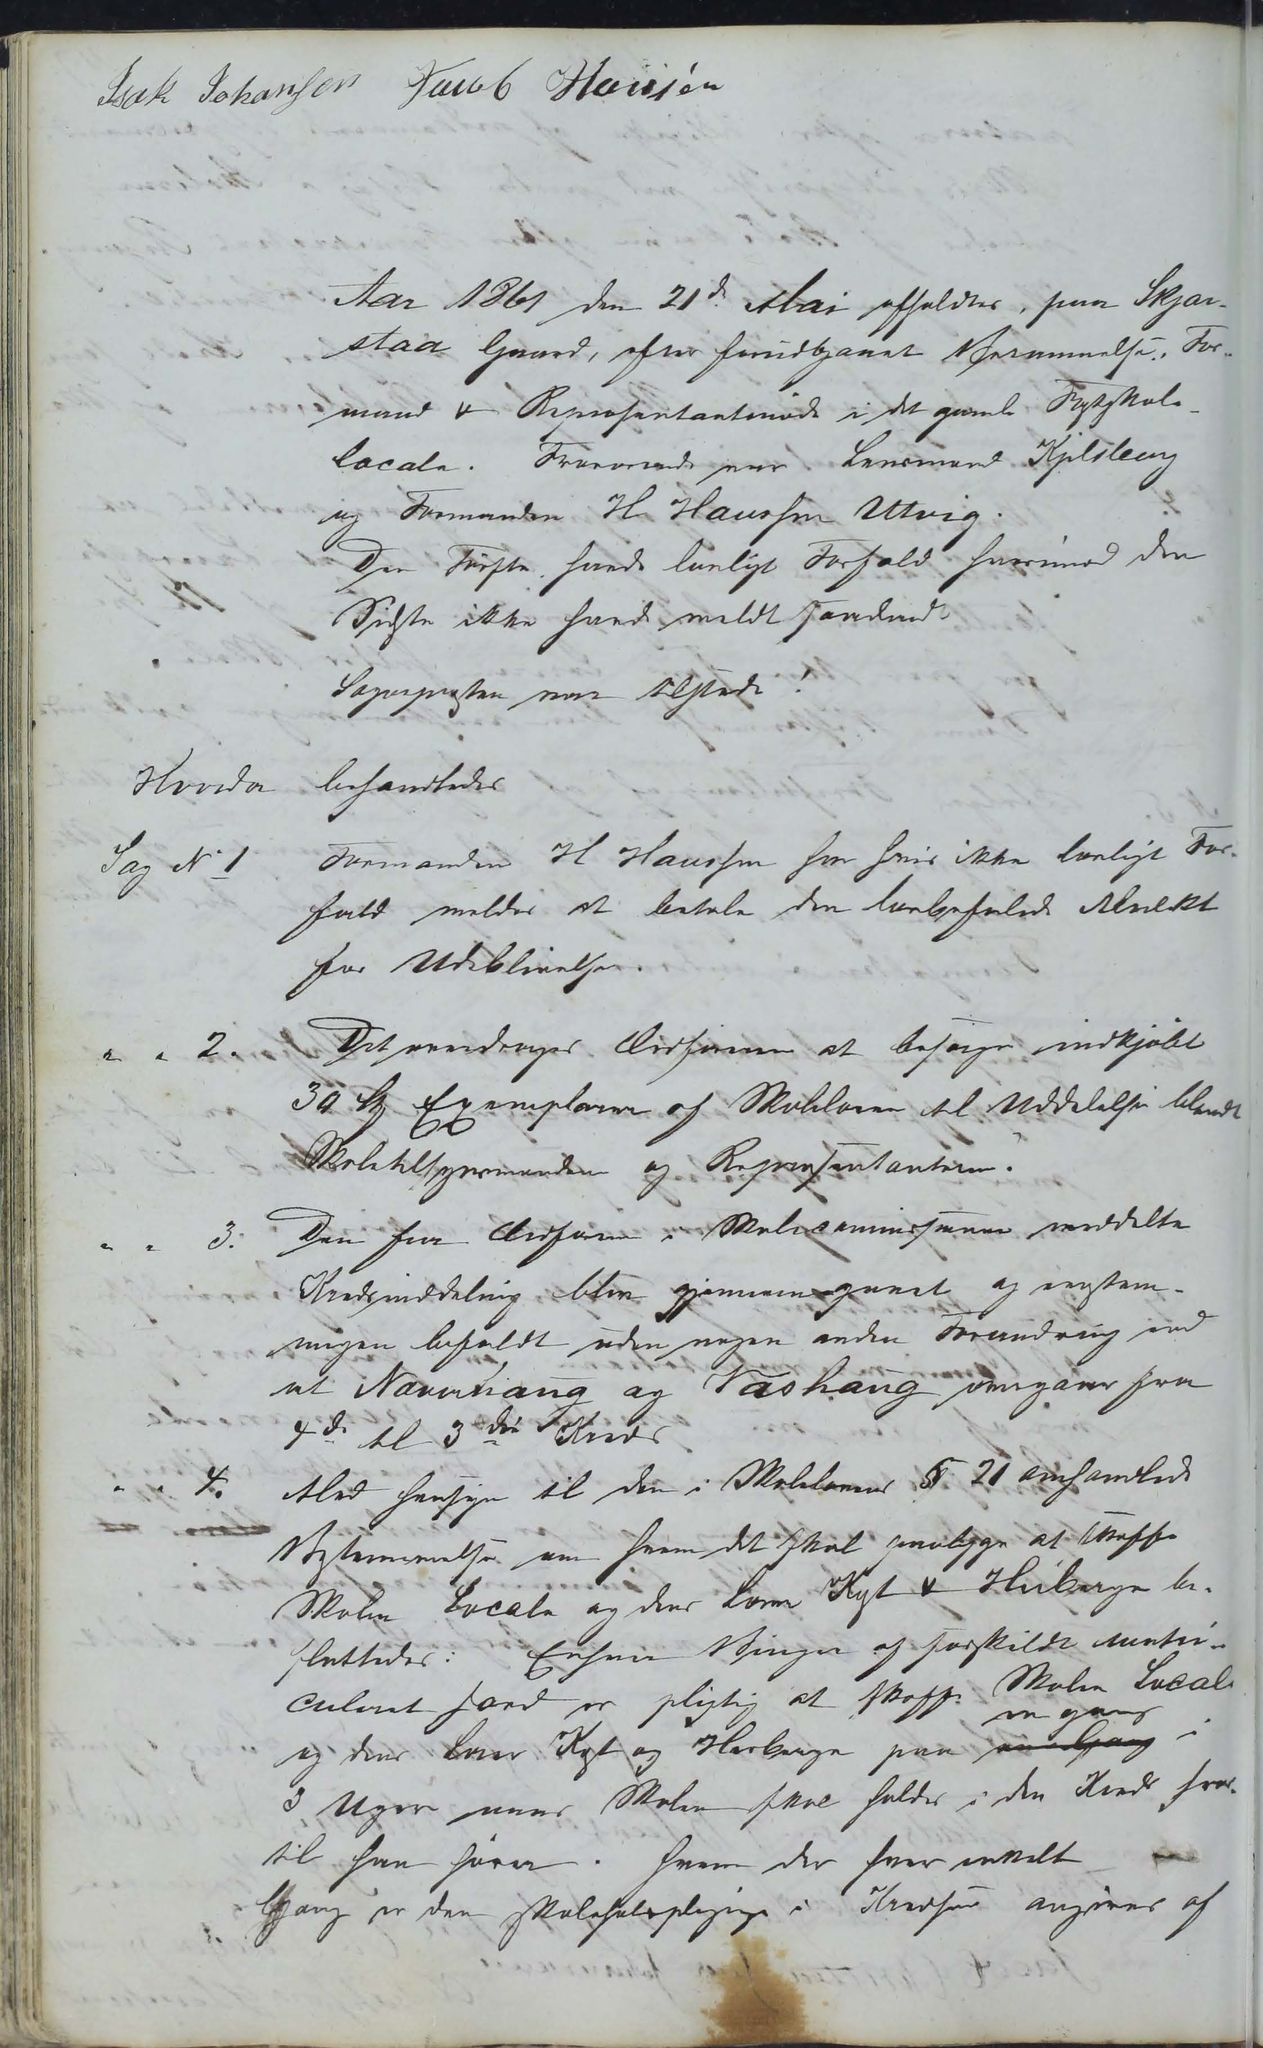 Isak Johansen Jacob Hansen
Aar 1861 den 21d. Mai afholdtes, paa Skjær-
staa Gaard, efter forudgaaet Berammelse, For-
mand & Repræsentantmøde i det gamle Fastskole-
locale. Fraværende var Lensmand Kjelsberg
og Formanden H Haussen Utvig.
Den Første havde lovligt Forfald hvorimod den
Sidste ikke havde meldt saadant.
Sognepresten var tilstede!
Hvorda behandledes
Sag No 1 Formanden H Haussen har hvis ikke lovligt For-
fald meldes at betale den lovbefalede Mulkt
for Udeblivelse.
" " 2. Det overdroges Ordføreren at besørge indkjøbt
30 Exemplarer af Skoleloven til Uddelelse blandt
Skoletilsynsmændene og Repræsentanterne.
" " 3. Den fra Ordføreren i Skolecommissionen meddelte
Kredsinddeling blev gjennemgaaet og enstem-
migen befaldt uden nogen anden Forandring end
at Naurhaug og Vashaug overgaaer fra
4de til 3die Kreds
" " 4. Med Hensyn til den i Skolelovens § 21 omhandlede
Bestemmelse om hvem det skal paaligge at skaffe
Skolen Locale og dens Lærer Kost & Herberge be-
sluttedes: Enhver Bruger af særskildt matri-
culeret Jord er pligtig at skaffe Skolen Locale
og dens Lærer Kost og Herberge paa en gang i
3 Uger naar Skolen skal holdes i den Kreds hvor-
til han hører. Hvem der hver enkelt
Gang er den skoleholdspligtige i Kredsen angives af